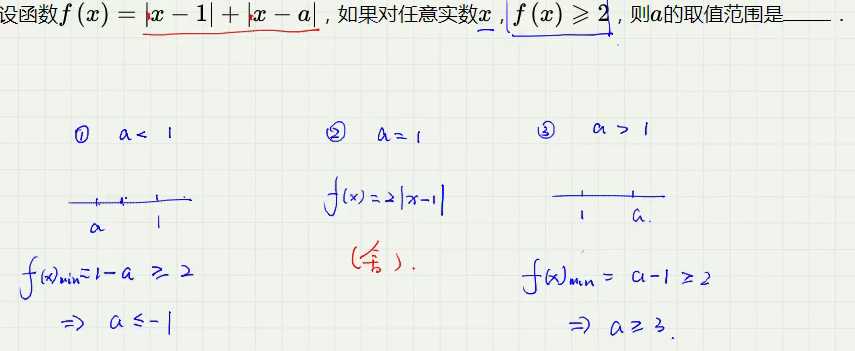 设函数f(x)=|x-1|+|x-a|,如果对任意实数x,f(x)⩾2,则a的取值范围是____.
① a < 1
② a = 1
③ a > 1
f(x)=2|x-1|
a 1
1 a.
(舍).
f(x)min=1-a ≥ 2
f(x)min = a-1 ≥ 2
⇒ a ≤ -1
⇒ a ≥ 3.